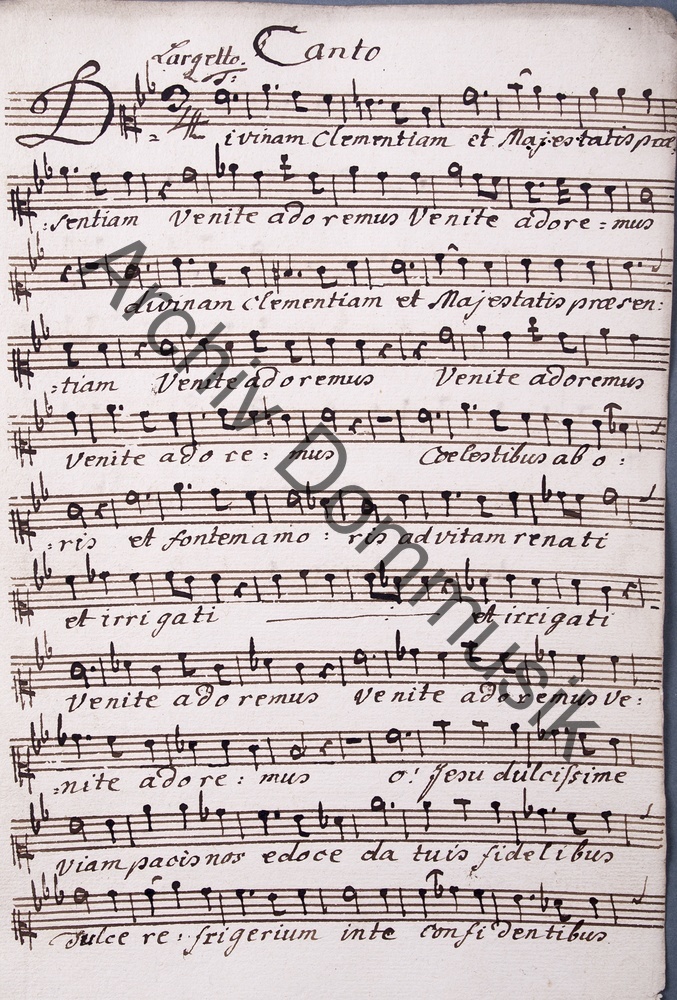 Largetto. Canto
Divinam Clementiam et Majestatis præ,
:sentiam Venite adoremus Venite adore:mus
divinam Clementiam et Majestatis præsen:
:tiam Venite adoremus Venite adoremus
Venite adore:mus Coelestibus ab o:
:ris et fontem amo:ris ad vitam renati
et irrigati et irrigati
Venite adoremus Venite adoremus Ve:
:nite adore:mus o! Jesu dulcissime
viam pacis nos edoce da tuis fidelibus
dulce re:frigerium in te confidentibus
Archiv Dommusik